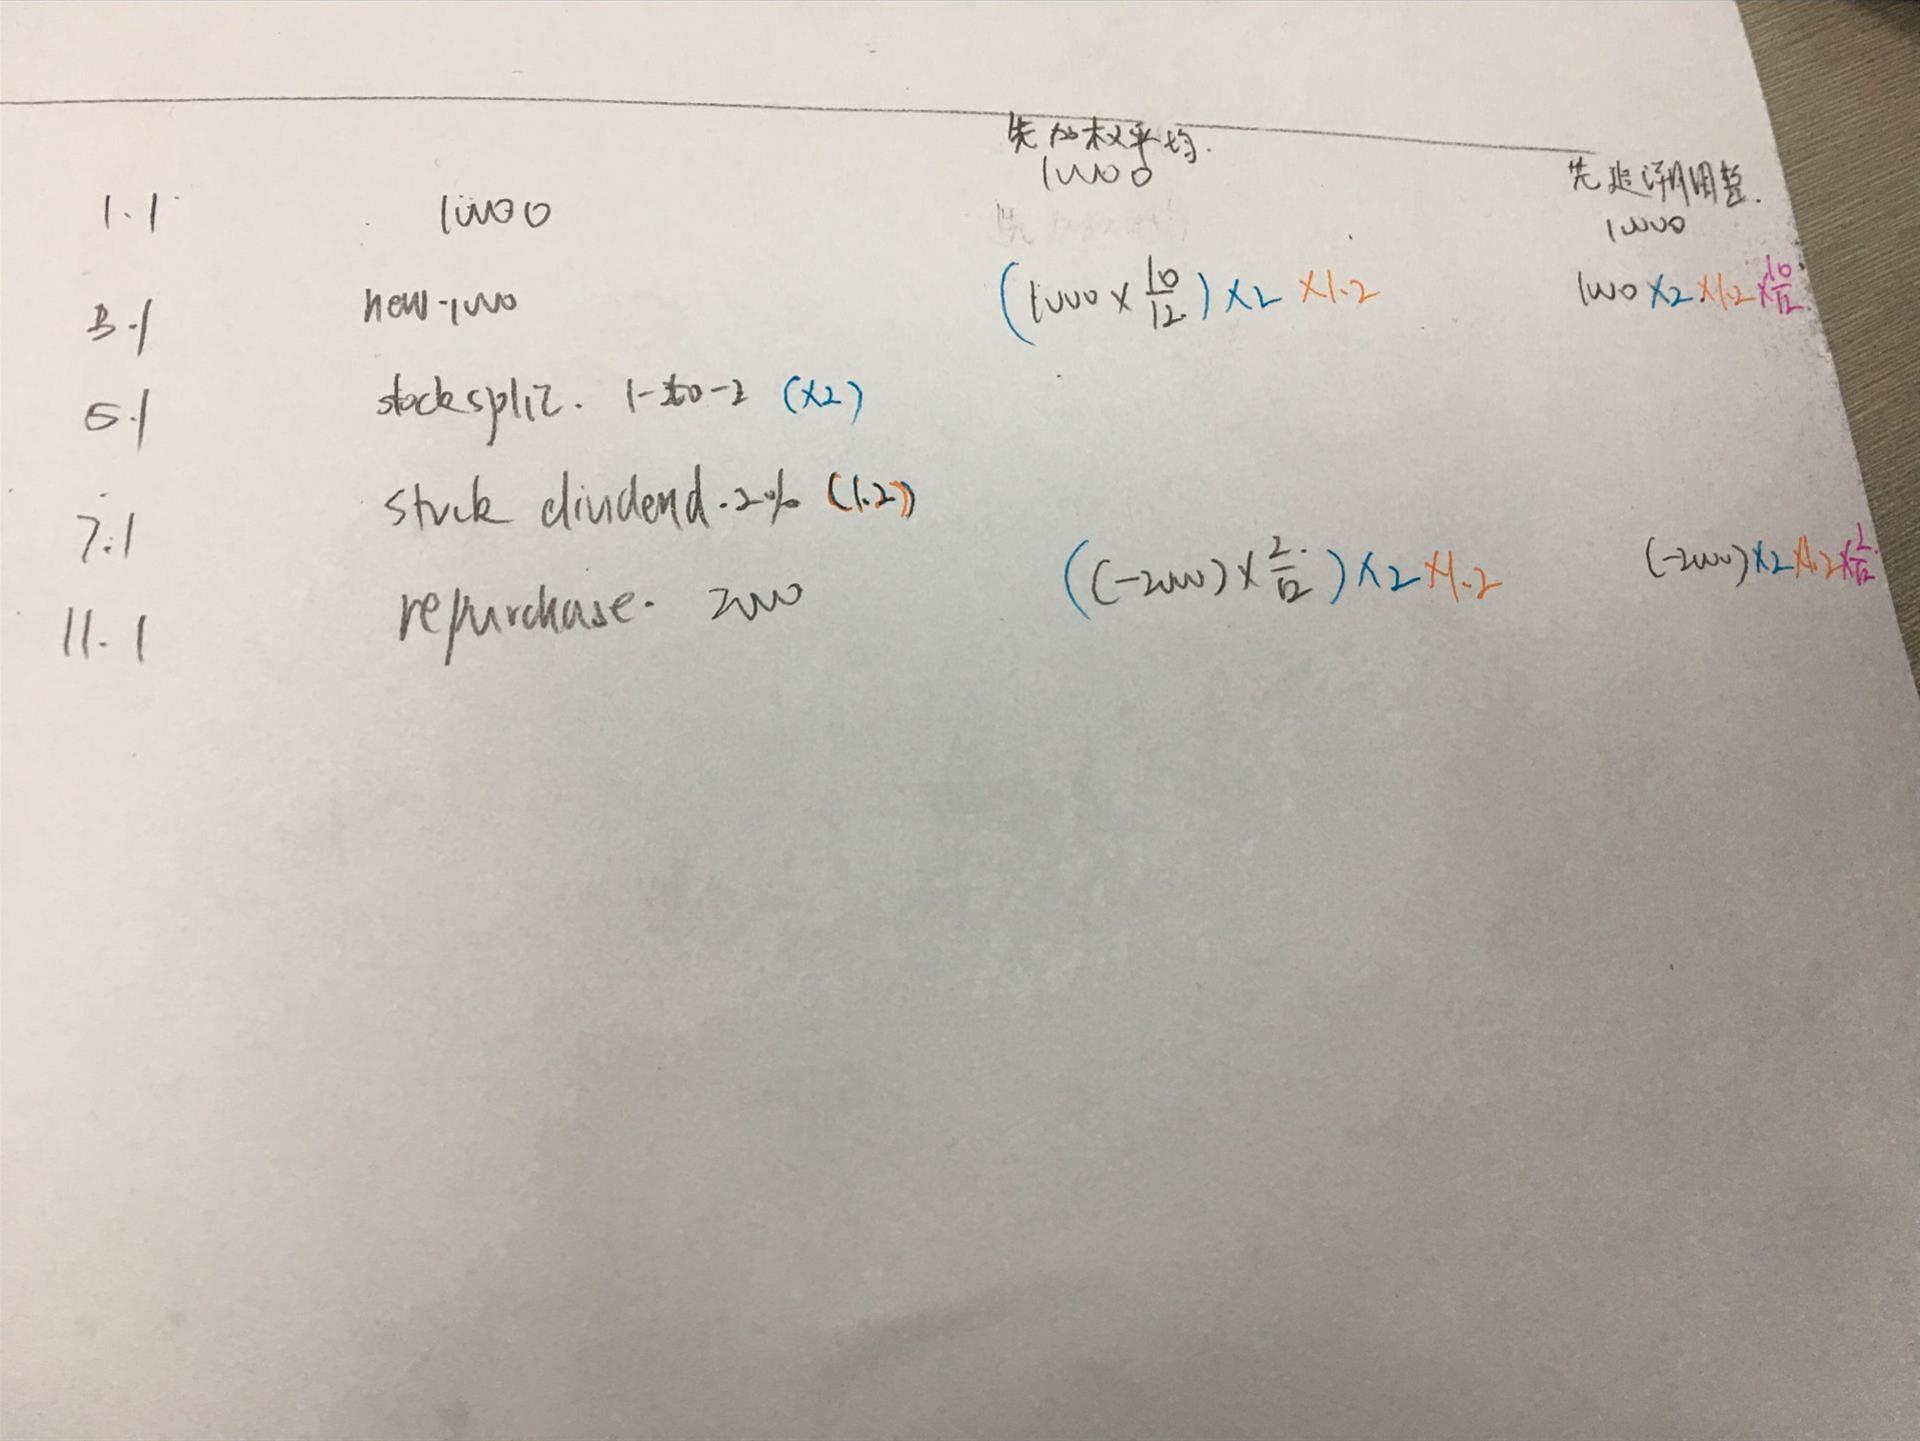 先加权平均.
10000
先追溯调整.
10000
1.1 10000
3.1 new-1000 (1000 × 10/12) ×2 ×1.2 1000 ×2 ×1.2 ×10/12
5.1 stock split. 1-to-2 (×2)
7.1 stock dividend. 2% (1.2)
11.1 repurchase. 2000 ((-2000) × 2/12) ×2 ×1.2 (-2000) ×2 ×1.2 ×2/12